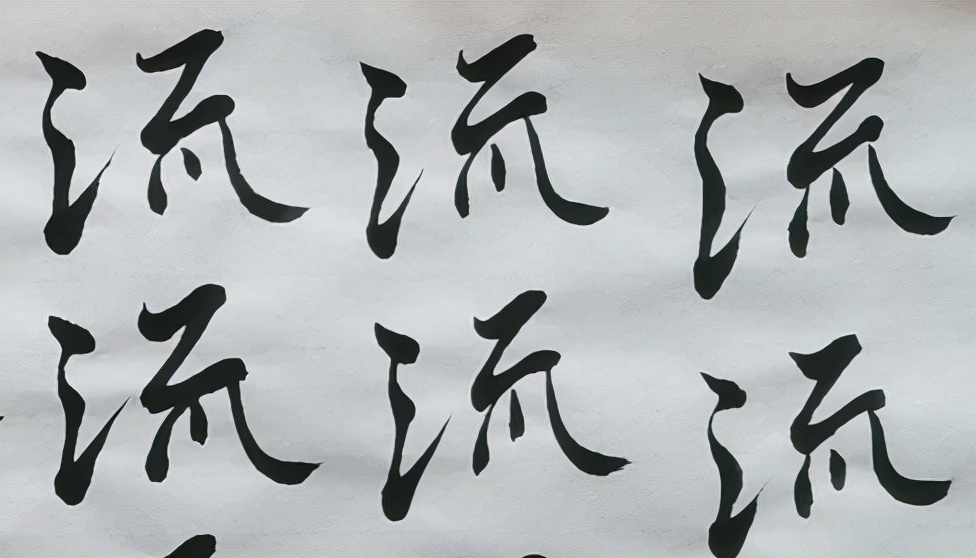 流流流
流流流